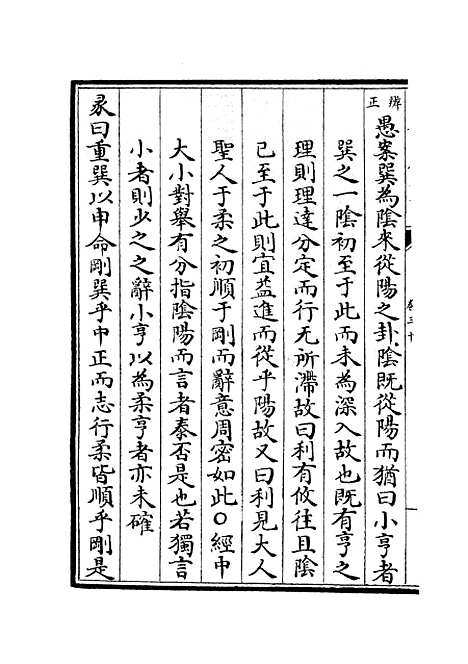 辨正
愚案巽為陰來從陽之卦陰既從陽而猶曰小亨者
巽之一陰初至于此而未為深入故也既有亨之
理則理達分定而行无所滯故曰利有攸往且陰
已至于此則宜益進而從乎陽故又曰利見大人
聖人于柔之初順于剛而辭意周密如此○經中
大小對舉有分指陰陽而言者泰否是也若獨言
小者則少之之辭小亨以為柔亨者亦未確
彖曰重巽以申命剛巽乎中正而志行柔皆順乎剛是
卷三十